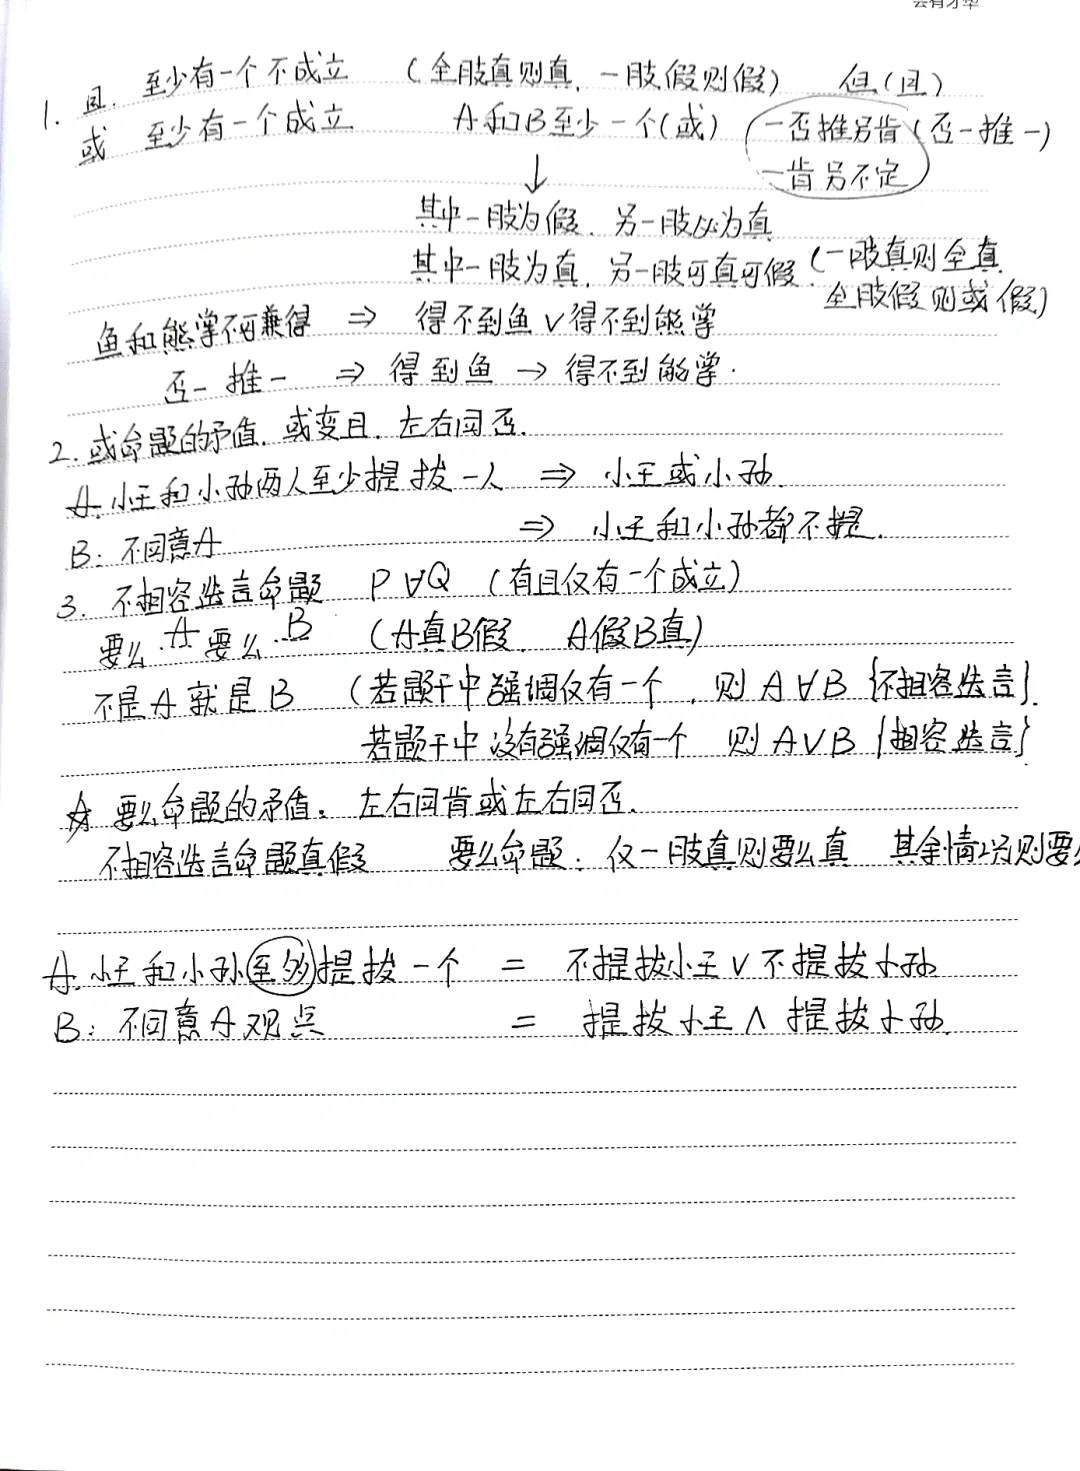 会有才华
1. 且. 至少有一个不成立 (全肢真则真, 一肢假则假) 但(且)
或 至少有一个成立 A和B至少一个(或) 一否推另肯 (否一推一)
一肯另不定
↓
其中一肢为假. 另一肢必为真
其中一肢为真, 另一肢可真可假. (一肢真则全真
全肢假则或假)
鱼和熊掌不可兼得 ⇒ 得不到鱼∨得不到熊掌
否一推一 ⇒ 得到鱼 → 得不到熊掌.
2. 或命题的矛值. 或变且. 左右同否.
A. 小王和小孙两人至少提拔一人 ⇒ 小王或小孙.
B: 不同意A ⇒ 小王和小孙都不提.
3. 不相容选言命题 P∀Q (有且仅有一个成立)
要么A要么B (A真B假. A假B真)
不是A就是B (若题干中强调仅有一个, 则A∀B {不相容选言}.
若题干中没有强调仅有一个 则A∨B {相容选言}
☆ 要么命题的矛值: 左右同肯或左右同否.
不相容选言命题真假 要么命题: 仅一肢真则要么真 其余情况则要么
A. 小王和小孙至多提拔一个 = 不提拔小王∨不提拔小孙
B: 不同意A观点 = 提拔小王∧提拔小孙.